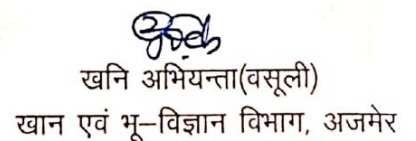 खनि अभियन्ता(वसूली)
खान एवं भू–विज्ञान विभाग, अजमेर